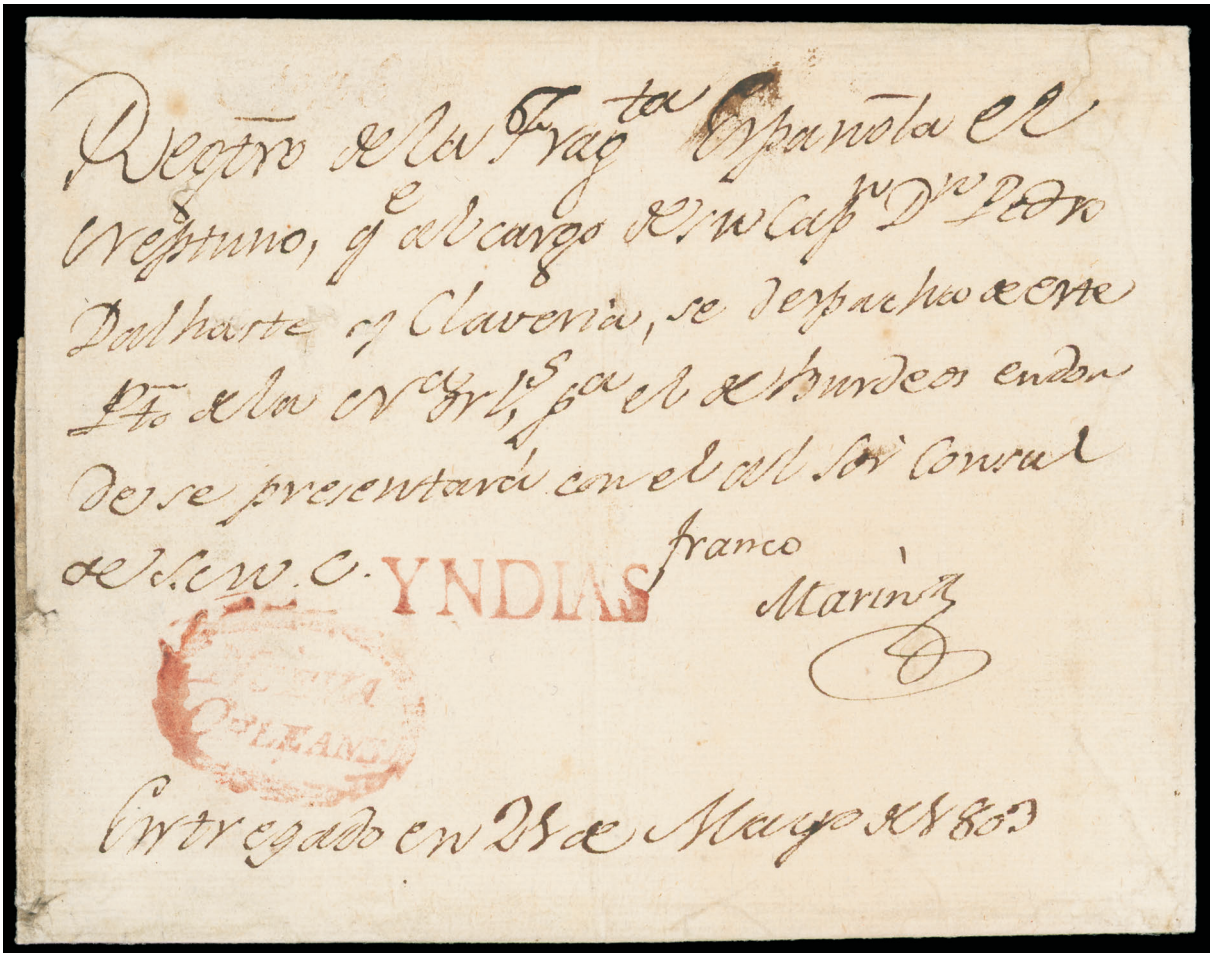 Regtro de la Fragta Española el
Neptuno, qe al cargo de su Capn Dn Pedro
Dalhaste y Claveria, se despacho de este
Pto de la Na Orls, pa el de Burdeos endon
de se presentará con el al Sor Consul
de S.M.C.
franco
YNDIAS
Marin
NUEVA
ORLEANS
Entregado en 21 de Mayo de 1803